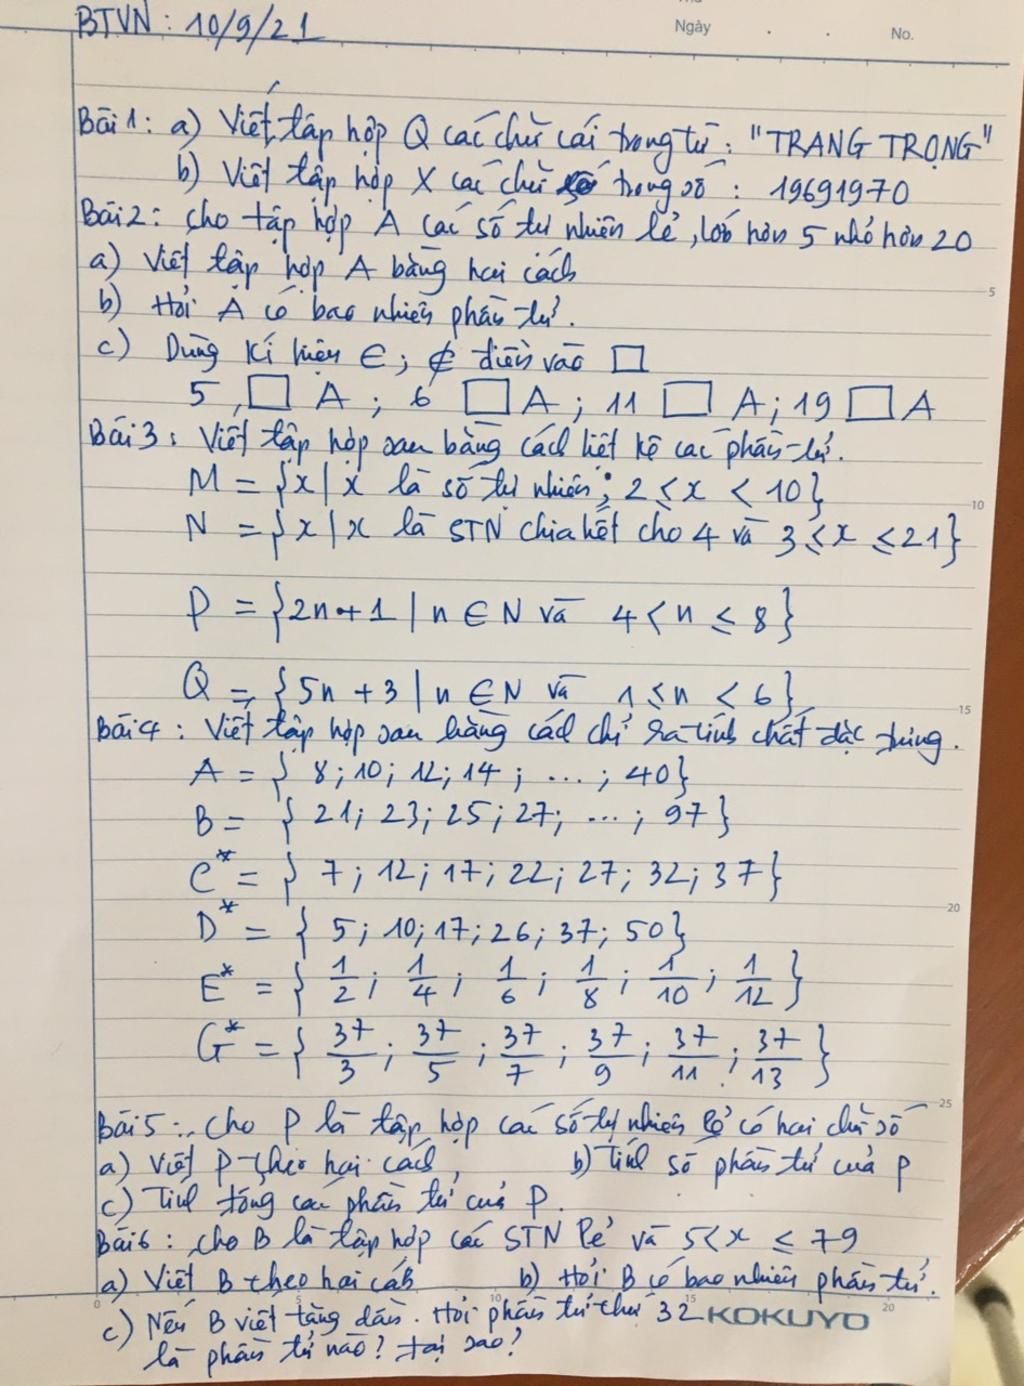 BTVN : 10/9/21
Ngày . . No.
Bài 1 : a) Viết tập hợp Q các chữ cái trong từ : "TRANG TRỌNG"
b) Viết tập hợp X các chữ số trong số : 19691970
Bài 2 : cho tập hợp A các số tự nhiên lẻ, lớn hơn 5 nhỏ hơn 20
a) Viết tập hợp A bằng hai cách
5
b) Hỏi A có bao nhiên phần tử.
c) Dùng kí hiệu ∈ ; ∉ điền vào □
5 □ A ; 6 □ A ; 11 □ A ; 19 □ A
Bài 3 : Viết tập hợp sau bằng cách liệt kê các phần tử.
M = {x | x là số tự nhiên ; 2 ≤ x < 10}
10
N = {x | x là STN chia hết cho 4 và 3 ≤ x ≤ 21}
P = {2n + 1 | n ∈ N và 4 < n ≤ 8}
Q = {5n + 3 | n ∈ N và 1 ≤ n < 6}
15
Bài 4 : Viết tập hợp sau bằng cách chỉ ra tính chất đặc trưng.
A = { 8 ; 10 ; 12 ; 14 ; ... ; 40}
B = { 21 ; 23 ; 25 ; 27 ; ... ; 97}
C* = { 7 ; 12 ; 17 ; 22 ; 27 ; 32 ; 37}
20
D* = { 5 ; 10 ; 17 ; 26 ; 37 ; 50}
E* = { 1/2 ; 1/4 ; 1/6 ; 1/8 ; 1/10 ; 1/12 }
G* = { 37/3 ; 37/5 ; 37/7 ; 37/9 ; 37/11 ; 37/13 }
25
Bài 5 : Cho P là tập hợp các số tự nhiên lẻ có hai chữ số
a) Viết P theo hai cách, b) Tính số phần tử của P
c) Tính tổng các phần tử của P.
Bài 6 : cho B là tập hợp các STN lẻ và 5 < x ≤ 79
a) Viết B theo hai cách b) Hỏi B có bao nhiên phần tử.
0 5 10 15 20
c) Nếu B viết tăng dần. Hỏi phần tử thứ 32 KOKUYO
là phần tử nào? tại sao?